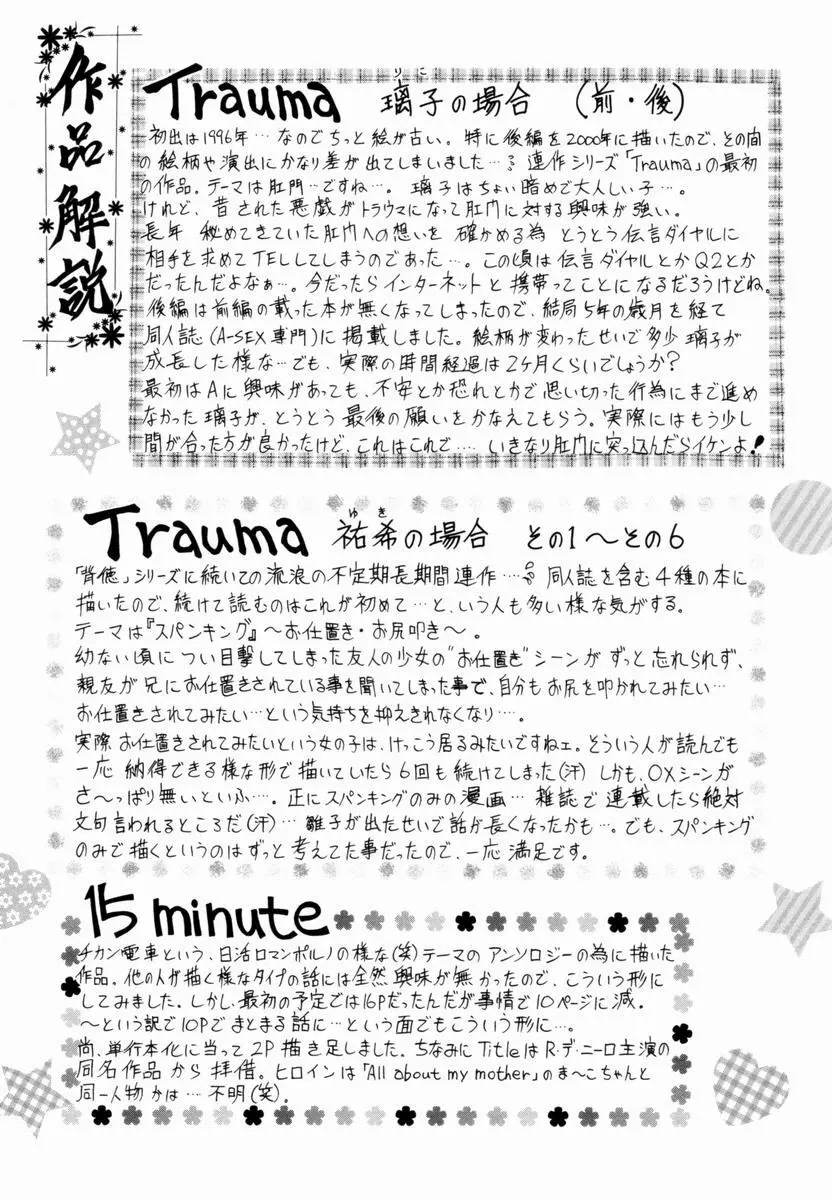 作品解説
Trauma 璃子の場合 (前・後)
りこ
初出は1996年…なのでちっと絵が古い。特に後編を2000年に描いたので、その間
の絵柄や演出にかなり差が出てしまいました…。連作シリーズ「Trauma」の最初
の作品。テーマは肛門…ですね…。璃子はちょい暗めで大人しい子…。
けれど、昔された悪戯がトラウマになって肛門に対する興味が強い。
長年 秘めてきていた肛門への想いを 確かめる為 とうとう伝言ダイヤルに
相手を求めてTELしてしまうのであった…。この頃は伝言ダイヤルとかQ2とか
だったんだよなぁ…。今だったらインターネットと携帯ってことになるだろうけどね。
後編は前編の載った本が無くなってしまったので、結局5年の歳月を経て
同人誌(A-SEX専門)に掲載しました。絵柄が変わったせいで多少璃子が
成長した様な…でも、実際の時間経過は2ヶ月くらいでしょうか?
最初はAに興味があっても、不安とか恐れとかで思い切った行為にまで進め
なかった璃子が、とうとう最後の願いをかなえてもらう。実際にはもう少し
間が合った方が良かったけど、これはこれで…. いきなり肛門に突っ込んだらイケンよ!
Trauma 祐希の場合 その1〜その6
ゆき
「背徳」シリーズに続いての流浪の不定期長期間連作… 同人誌を含む4種の本に
描いたので、続けて読むのはこれが初めて…と、いう人も多い様な気がする。
テーマは『スパンキング』〜お仕置き・お尻叩き〜。
幼ない頃につい目撃してしまった友人の少女の"お仕置き"シーンがずっと忘れられず、
親友が兄にお仕置きされている事を聞いてしまった事で、自分もお尻を叩かれてみたい…
お仕置きされてみたい…という気持ちを抑えきれなくなり…。
実際お仕置きされてみたいという女の子は、けっこう居るみたいですねェ。そういう人が読んでも
一応 納得できる様な形で描いていたら6回も続けてしまった(汗) しかも、OXシーンが
さ〜っぱり無いといふ…。正にスパンキングのみの漫画… 雑誌で連載したら絶対
文句言われるところだ(汗)… 雛子が出たせいで話が長くなったかも…。でも、スパンキング
のみで描くというのはずっと考えてた事だったので、一応満足です。
15 minute
チカン電車という、日活ロマンポルノの様な(笑)テーマのアンソロジーの為に描いた
作品。他の人が描く様なタイプの話には全然興味が無かったので、こういう形に
してみました。しかし、最初の予定では16Pだったんだが事情で10ページに減.
〜という訳で10Pでまとまる話に…という面でもこういう形に…。
尚、単行本化に当って2P描き足しました。ちなみにTitleはR・デ・ニーロ主演の
同名作品から拝借。ヒロインは「All about my mother」のま〜こちゃんと
同一人物かは…不明(笑)。